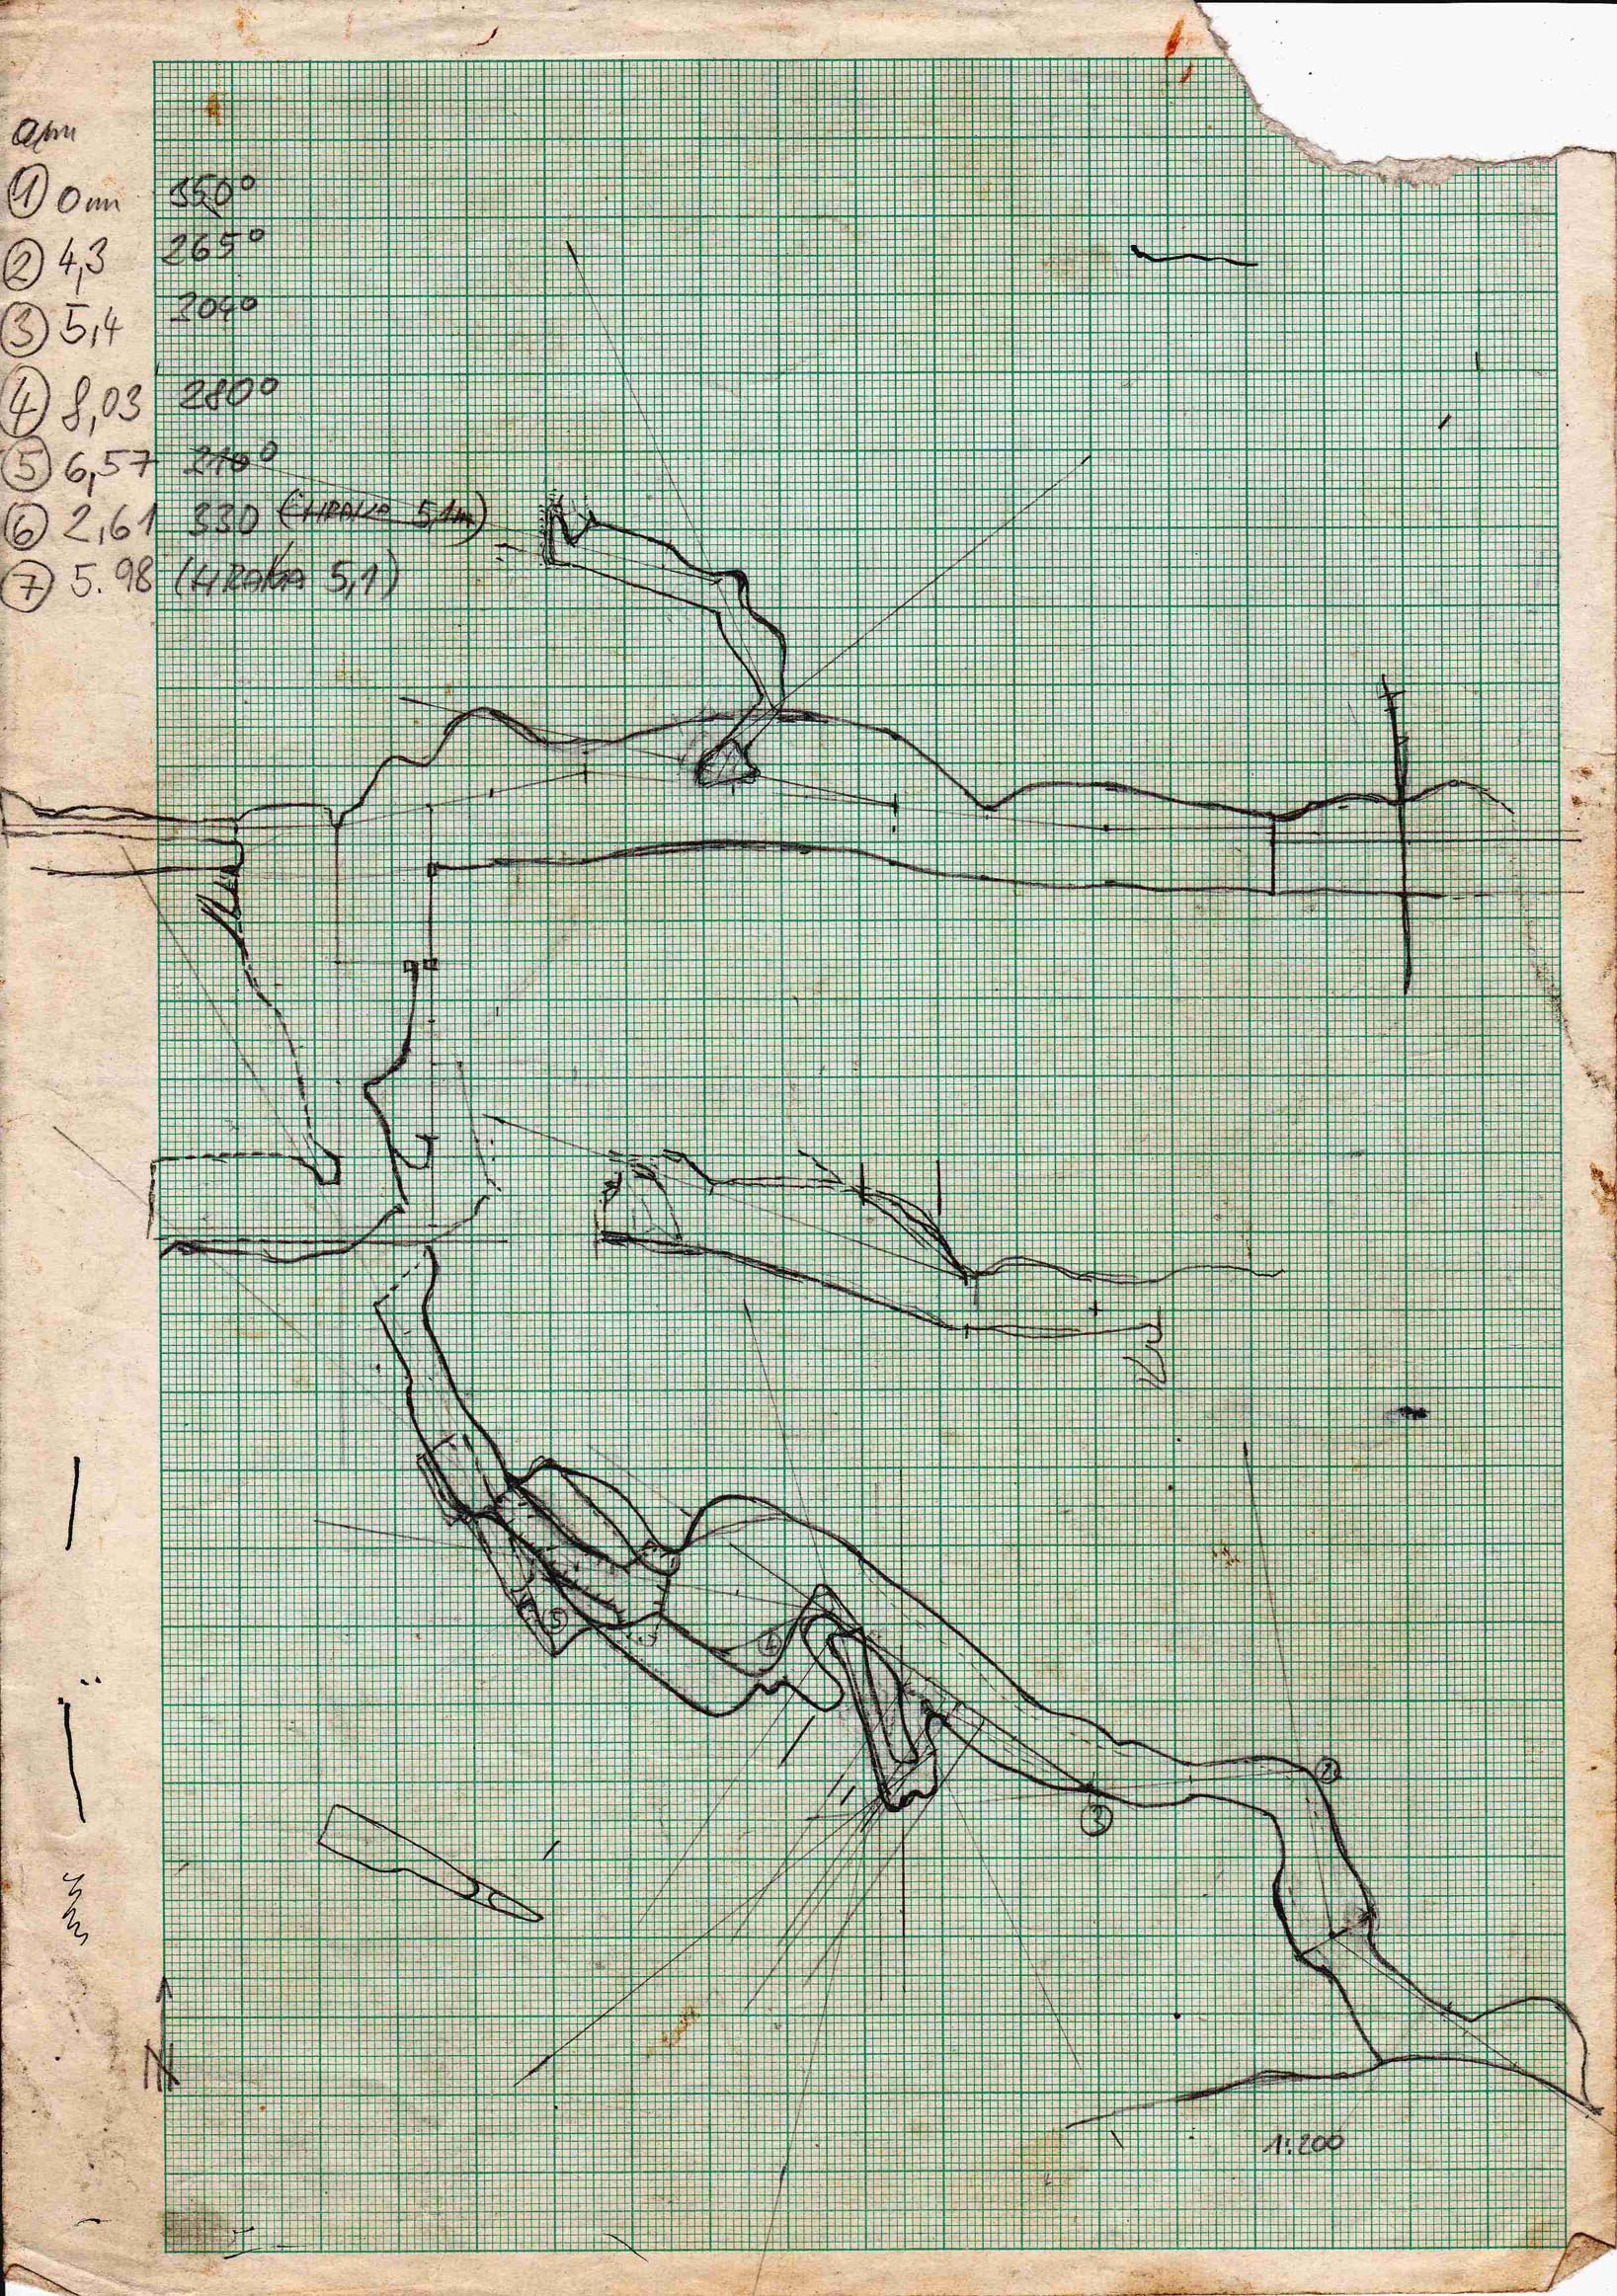 ① 0m 350°
② 4,3 265°
③ 5,4 304°
④ 8,03 280°
⑤ 6,57 210°
⑥ 2,61 330 (HRANA 5,1m)
⑦ 5.98 (HRANA 5,1)
⑤
④
②
③
N
1:200